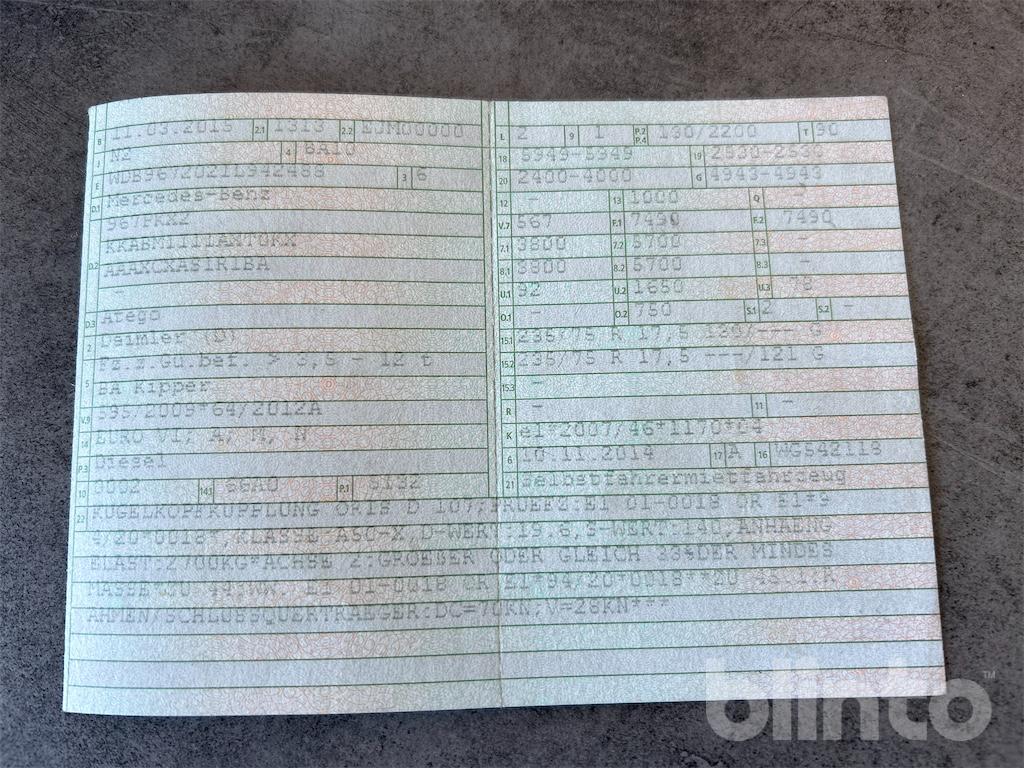 B 11.03.2015 2.1 1313 2.2 EJM00000
J N2 4 BA10
E WDB9672021L942488 3 6
D.1 Mercedes-Benz
967FRX2
D.2 KKABM1111ANT0KX
AAAXCXAS1R1BA
-
D.3 Atego
2 Daimler (D)
5 Fz.z.Gü.bef. > 3,5 - 12 t
BA Kipper
V.9 595/2009*64/2012A
14 EURO VI; A, M, N
P.3 Diesel
10 0002 14.1 66A0 P.1 5132
L 2 9 1 P.2 P.4 130/2200 T 90
18 5949-5949 19 2530-2530
20 2400-4000 G 4943-4943
12 - 13 1000 Q -
V.7 567 F.1 7490 F.2 7490
7.1 3800 7.2 5700 7.3 -
8.1 3800 8.2 5700 8.3 -
U.1 92 U.2 1650 U.3 78
O.1 - O.2 750 S.1 2 S.2 -
15.1 235/75 R 17,5 130/--- G
15.2 235/75 R 17,5 ---/121 G
15.3 -
R - 11 -
K e1*2007/46*1170*04
6 10.11.2014 17 A 16 WG542118
21 Selbstfahrermietfahrzeug
22 KUGELKOPFKUPPLUNG ORIS D 107,PRUEFZ:E1 01-0018 OR E1*9
4/20*0018*,KLASSE A50-X,D-WERT:19.6,S-WERT:140,ANHAENG
ELAST:2700KG*ACHSE 2:GROEßER ODER GLEICH 33%DER MINDES
MASSE*ZU 44:WW. E1 01-0018 OR E1*94/20*0018**ZU 43.1:R
AHMEN/SCHLUSSQUERTRAEGER:DC=70KN;V=28KN***
blinto™